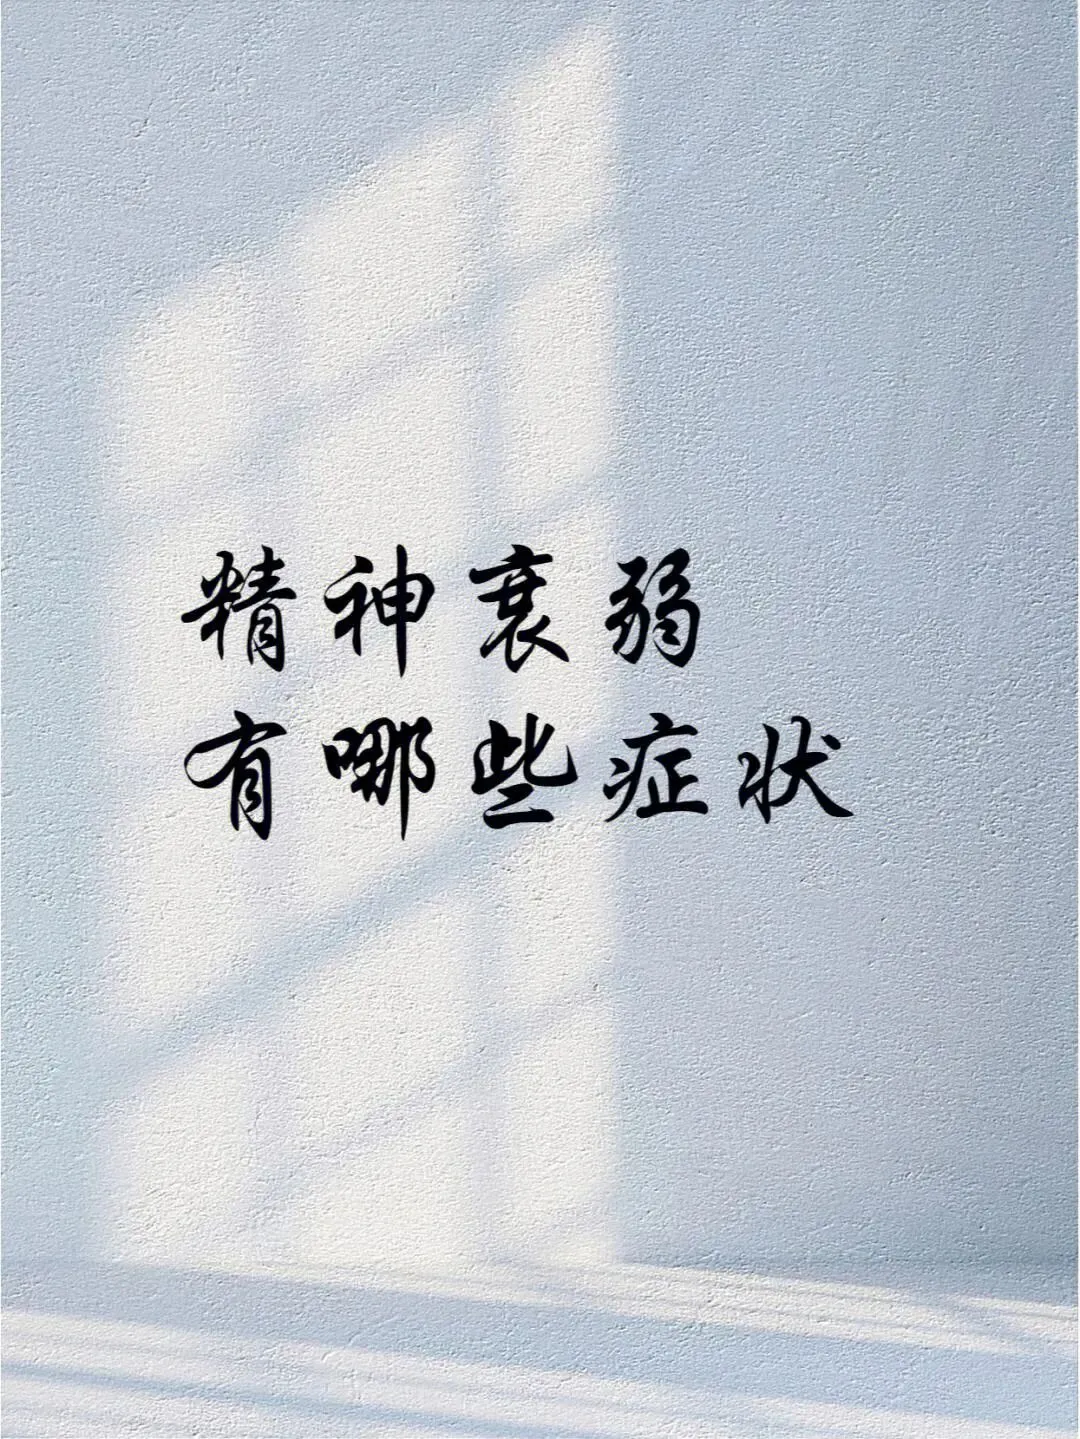 精神衰弱
有哪些症状